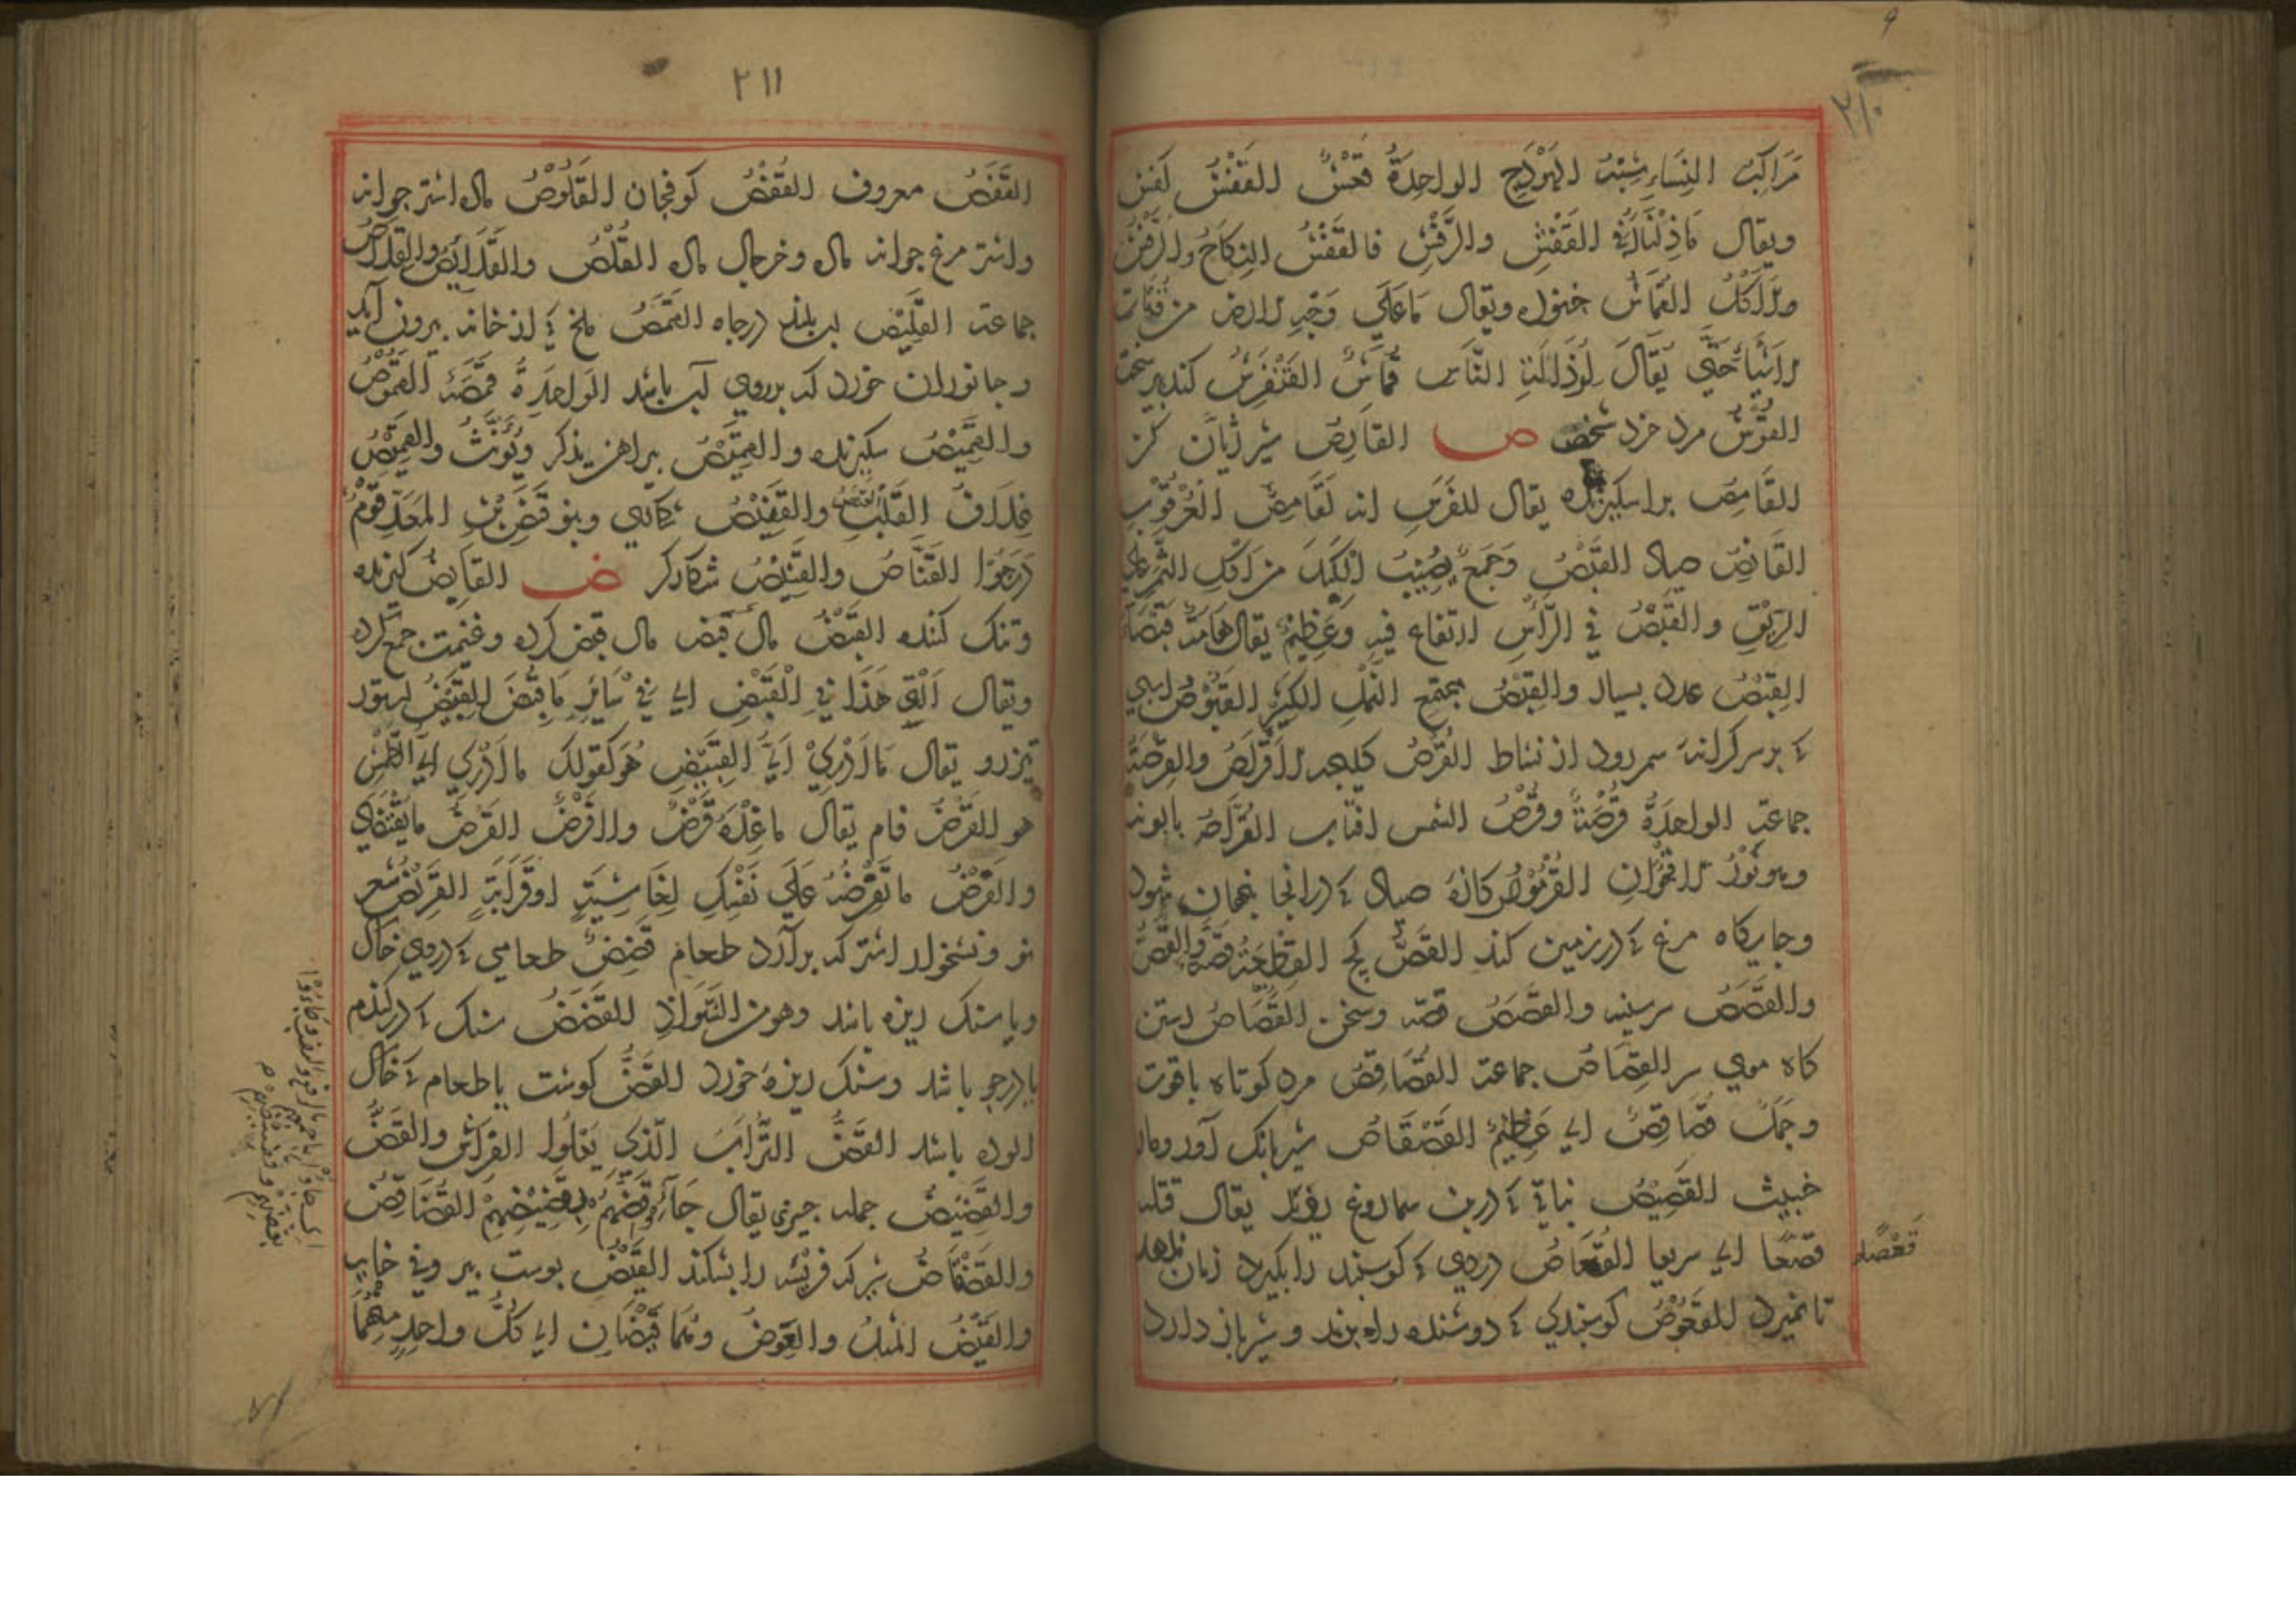 ٢١٠
مَرَاكِبُ النِّسَاءِ شِبْهُ الهَوْدَجِ الواحِدَةُ قَعْشٌ القَفْشُ كفش
ويقال مَاذِلْنَا فِي القَفْشِ والرَّفْشِ فالقَفْشُ النِكَاحُ والرَّفْشُ
الاكْلُ القُمَاشُ خنوره ويقال مَا عَلَي وَجْهِ الارض من فُتَات
الاَشْيَاءِ حَتَّي يُقَالَ لِرُذَالَةِ النَّاسِ قُمَاشٌ القَنْفَرِشُ كنده پير سخت
القُوْشُ مرد خرد شخص ص القَارِصُ شير زبان كز
القَامِصُ براسكيزنده يقال للفَرَسِ انه لَقَامِصُ العُرْقُوْبِ
القَانِصُ صياد القَبَصُ وَجَعٌ يُصِيْبُ الكَبِدَ من اكْلِ التَّمْرِ عَلي
الرِّيْقِ والقَبَصُ فِي الرَّاسِ ارتفاع فيهِ وَعَظِيْمٌ يقال هَامَةٌ قَبْصَاءُ
القِبْصُ عدد بسيار والقِبْصُ مجتمع النَّمْلِ الكَثِيْر القَبُوْصُ اسبي
كه بر سر كرانه سم رود از نشاط القُرْصُ كليجه الاَقْرَاصُ والقِرَصَةُ
جماعة الواحِدَةُ قُرْصَةٌ وقُرْصُ الشمس افتاب القُرَّاصُ بابونه
وهو نَوْرُ الاقْحُوَانِ القُرْمُوْصُ كازه صياد كه در انجا پنهان شود
وجايكاه مرغ كه در زمين كند القَصُّ كچ القِطْعَةُ قَصَّةٌ والقَصُّ
والقَصَصُ سر سينه والقَصَصُ قصّه وسخن القُصَاصُ رستن
كاه موي سر القِصَاصُ جماعة القُصَاقِصُ مرد كوتاه با قوت
وجَمَلٌ قُصَاقِصٌ اي عَظِيْمٌ القَصْقَاصُ شير بانك آور ومار
خبيث القَصِيْصُ نباتي كه در بن سماروغ رويد يقال قتله
قصعا اي سريعا القُعَاصُ دردي كه كوسپند را بكيرد زمان ندهد
تا بميرد القَعُوْصُ كوسپندي كه دوشنده را بزند و شير باز دارد
قَعْصًا
٢١١
القَفَصُ معروف القُفْصُ كوفجان القَلُوْصُ ماده اشتر جوانه
واشتر مرغ جوانه ماده وخرچال ماده القُلُصُ والقَلَائِصُ والقِلَاصُ
جماعة القَلِيْصُ اب بلند در چاه القَمَصُ ملخ كه از خانه بيرون آيد
وجانوران خورد كه بر روي آب باشد الواحِدَةُ قَمَصَةٌ القَمُوْصُ
والقَمِيْصُ سكيزنده والقَمِيْصُ پيراهن يذكر ويُؤَنَّثُ والقَمِيْصُ
غِلَافُ القَلْبِ القَنَصُ والقَنِيْصُ شكاري وبنو قَنَصِ بْنِ المَعَدِّ قَوْمٌ
دَرَجُوْا القَنَّاصُ والقَنِيْصُ شكاركر ض القَابِضُ كيرنده
وتنك كننده القَبَضُ مال قبض مال قبض كرده وغنيمت جمع كرده
ويقال اَلْقِ هَذَا فِي القَبَضِ اي فِي سَائِرِ مَا قُبِضَ القَبِيْضُ ستور
تيز رو يقال مَا اَدْرِيْ اَيُّ القَبِيْضِ هُوَ كقولك ما ادري اي الطَّمْشِ
هو القَرْضُ فام يقال مَا عَلَيْهِ قَرْضٌ ولا فَرْضٌ القَرْضُ ما يُقْتَضَي
والقَرْضُ مَا تُقْرِضُهُ عَلَي نَفْسِكَ لِغَاشِيَةٍ او قَرَابَةٍ القَرِيْضُ شعر
نو ونشخوار اشتر كه برآرد طعام قَضَضٌ طعامي كه در وي خاك
ويا سنك ريزه باشد وهو من النَّوَادِرِ القَضَضُ سنك كه در كندم
يا در جو باشد وسنك ريزه خورد القَضُّ كوشت يا طعام كه خاك
الوده باشد القَضُّ التُّرَابُ الَّذِي يَعْلُوا الفِرَاشَ والقَضُّ
والقَضِيْضُ جمله چيزي يقال جَاءُوْا قَضُّهُمْ بِقَضِيْضِهِمْ القُضَاقِضُ
والقَضْقَاضُ شير كه فريسه را بشكند القَيْضُ پوست بيروني خايه
والقَيْضُ المثلُ والعِوَضُ وهُمَا قَيْضَانِ اي كُلُّ واحِدٍ مِنْهُمَا